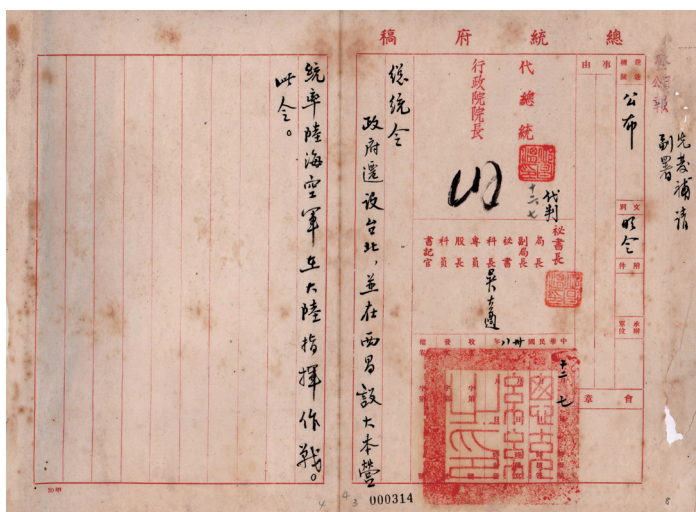 總統府稿
先發補請
副署
公報
發送機關
公布
文別
明令
附件
承辦單位
事由
會章
代總統
行政院院長
十二六七
代判
祕書長
局長
副局長
祕書
科長
專員
股長
科員
書記官
中華民國卅八年
十二七
總統令
政府遷設台北，並在西昌設大本營
統率陸海空軍在大陸指揮作戰。
此令。
000314